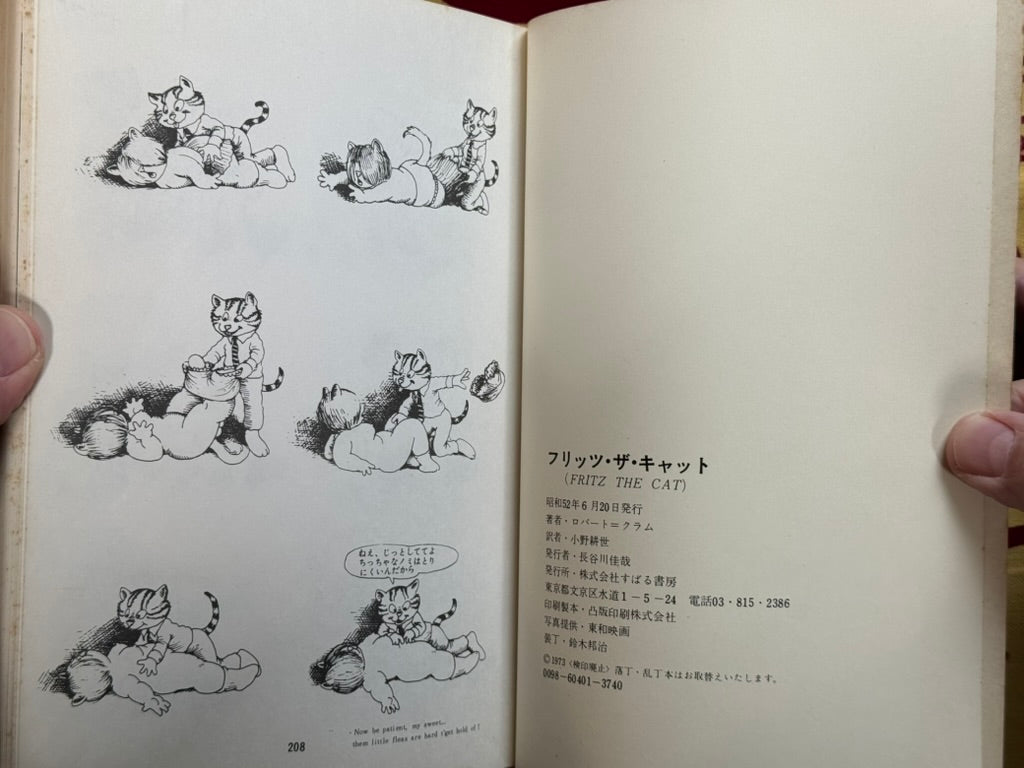 ねえ、じっとしててよ
ちっちゃなノミはとり
にくいんだから
· Now be patient, my sweet...
them little fleas are hard t'get hold of!
208
フリッツ・ザ・キャット
(FRITZ THE CAT)
昭和52年6月20日発行
著者・ロバート=クラム
訳者・小野耕世
発行者・長谷川佳哉
発行所・株式会社すばる書房
東京都文京区水道1-5-24 電話03・815・2386
印刷製本・凸版印刷株式会社
写真提供・東和映画
装丁・鈴木邦治
©1973〈検印廃止〉落丁・乱丁本はお取替えいたします。
0098-60401-3740